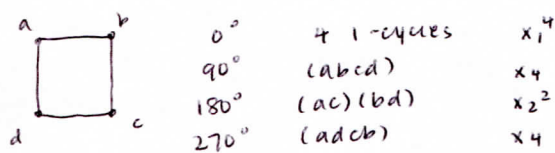 a b
d c
0° 4 1-cycles x₁⁴
90° (abcd) x₄
180° (ac)(bd) x₂²
270° (adcb) x₄